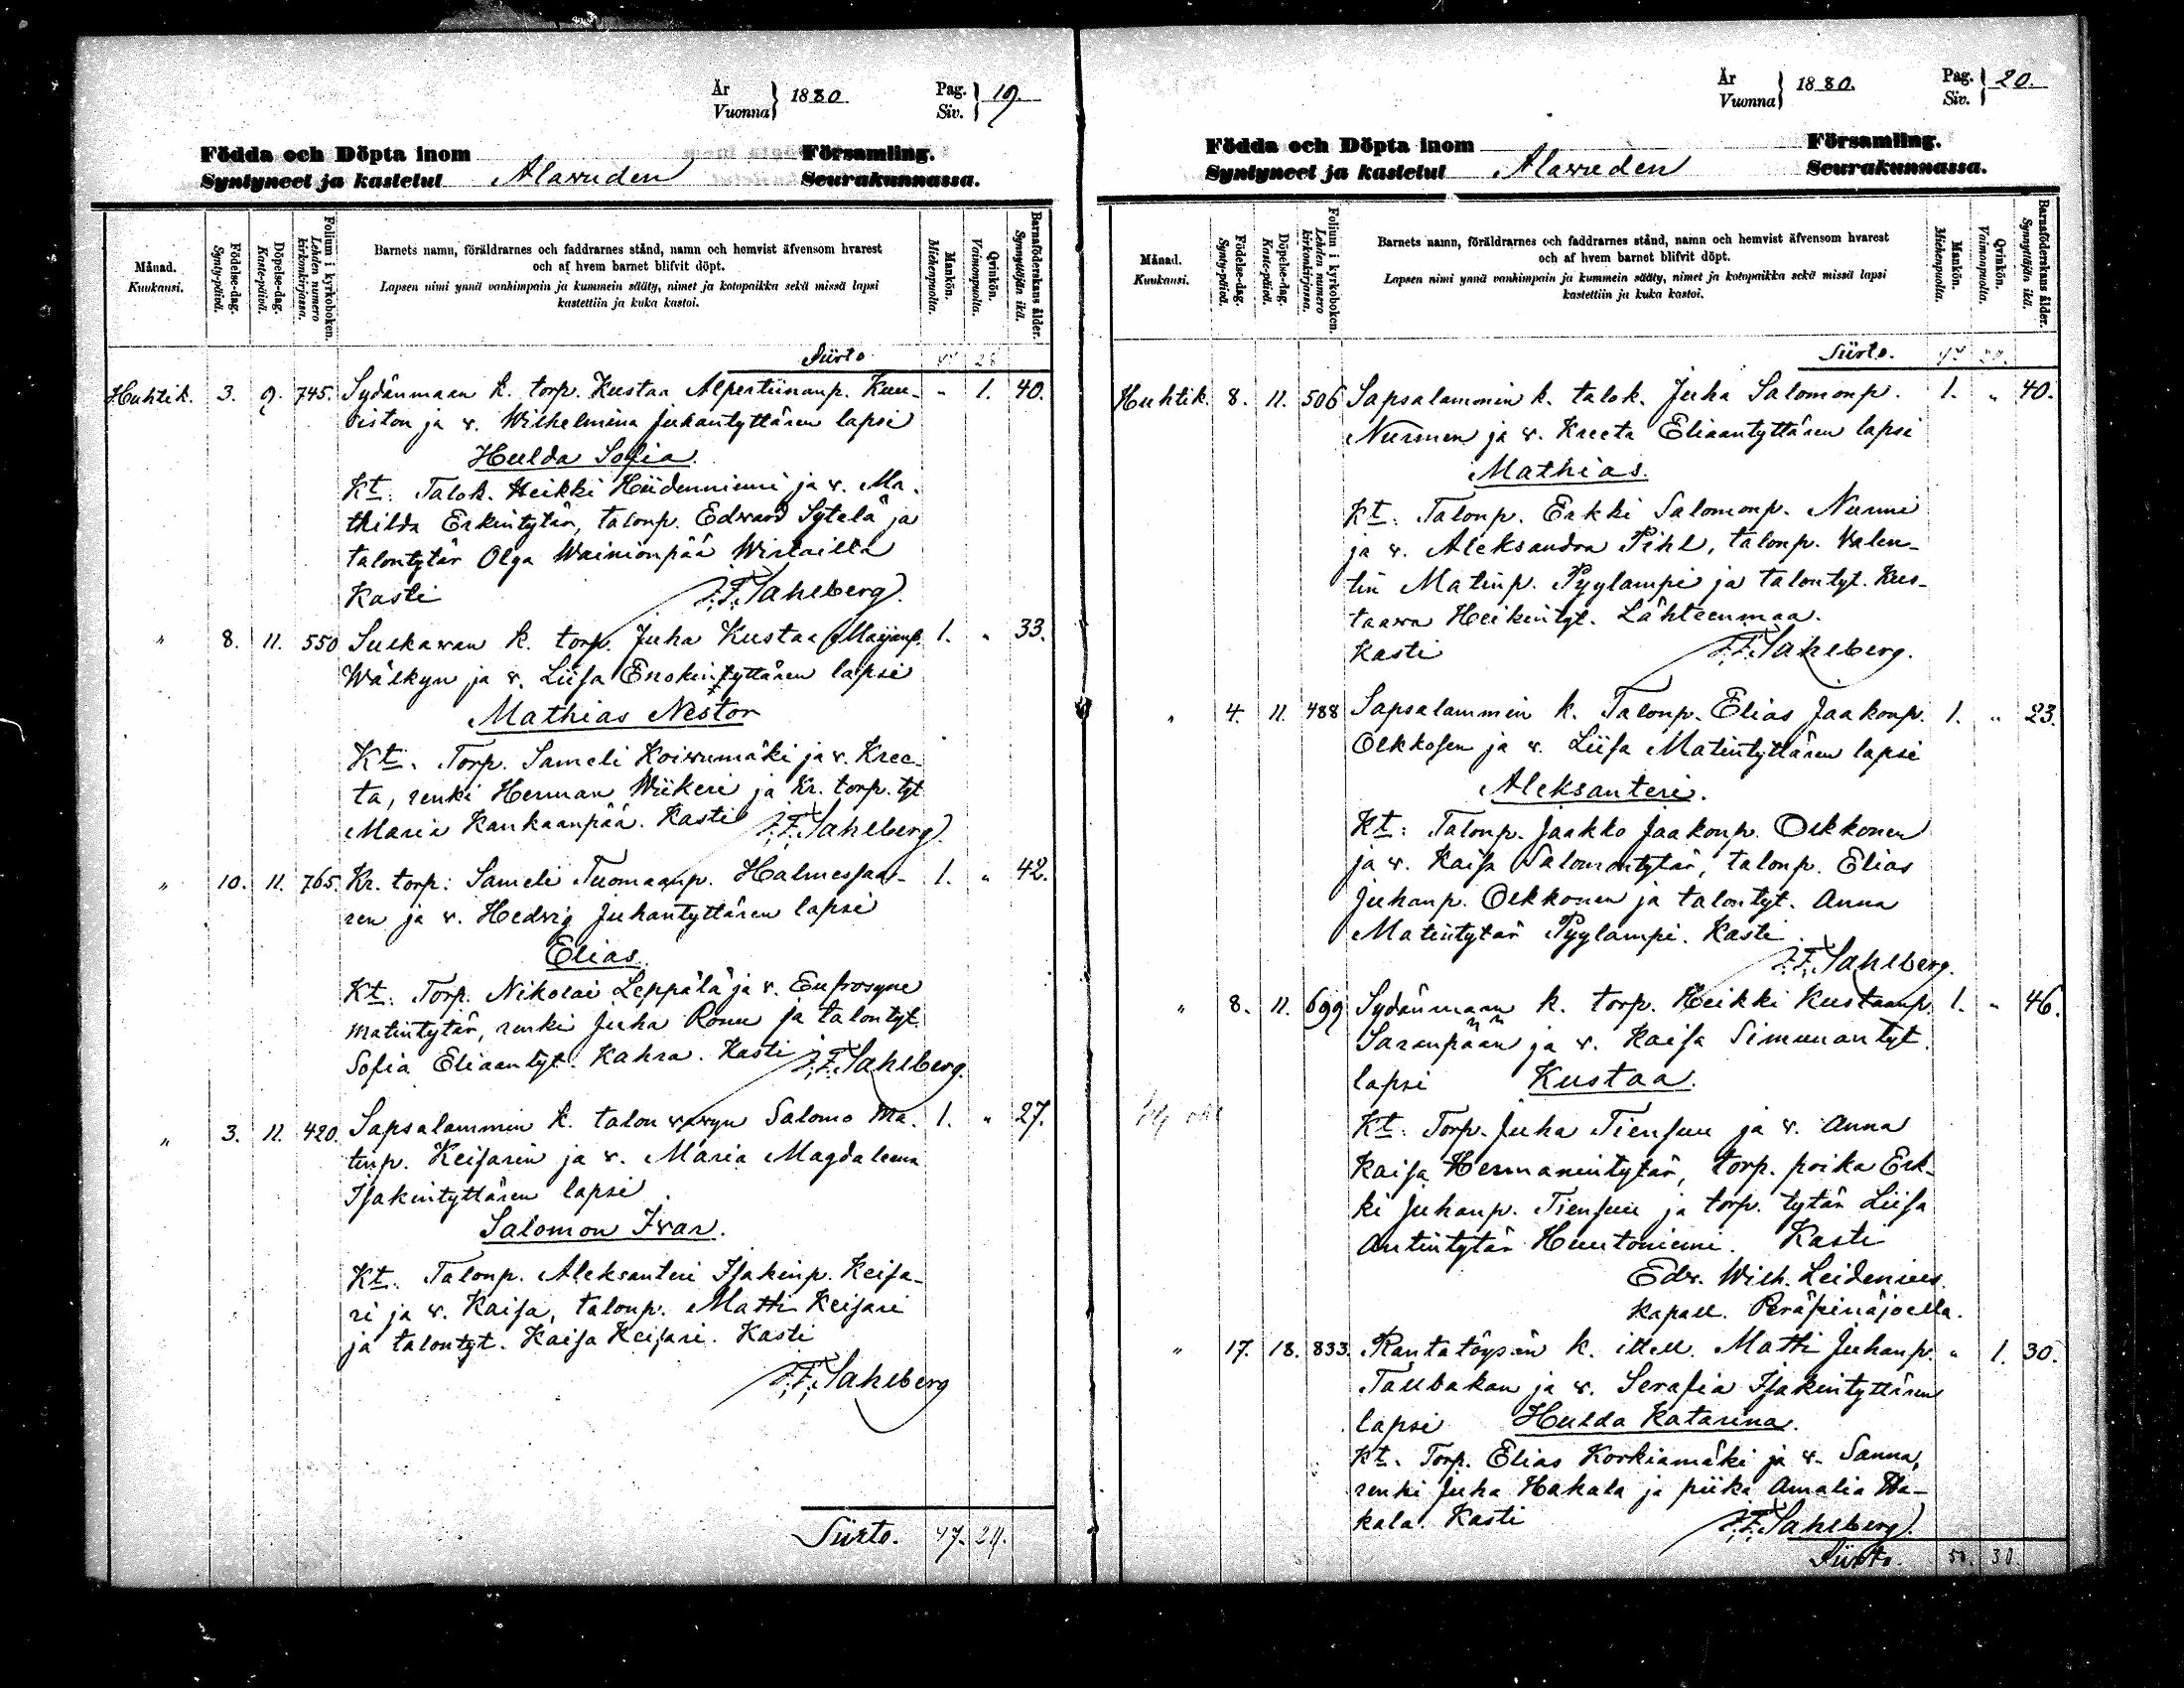 År
Vuonna } 1880. Pag.
Siv. } 19.
Födda och Döpta inom Församling.
Syntyneet ja kastetut Alavuden Seurakunnassa.
Månad.
Kuukausi.
Födelse-dag.
Synty-päivä.
Döpelse-dag.
Kaste-päivä.
Folium i kyrkoboken.
Lehden numero
kirkonkirjassa.
Barnets namn, föräldrarnes och faddrarnes stånd, namn och hemvist äfvensom hvarest
och af hvem barnet blifvit döpt.
Lapsen nimi ynnä vanhimpain ja kummein sääty, nimet ja kotopaikka sekä missä lapsi
kastettiin ja kuka kastoi.
Mankön.
Miehenpuolta.
Qvinkön.
Vaimonpuolta.
Barnaföderskans ålder.
Synnyttäjän ikä.
Siirto
Huhtik. 3. 9. 745. Sydänmaan k. torp. Kustaa Alperttiinanp. Kuu- " 1. 40.
siston ja v. Wilhelmina Juhantyttären lapsi
Hulda Sofia.
Kt. Talok. Heikki Hiidenniemi ja v. Ma-
thilda Erkintytär, talonp. Edward Sytelä ja
talontytär Olga Wainionpää Wirtailla
Kasti F.F. Sahlberg.
" 8. 11. 550 Sulkavan k. torp. Juha Kustaa Maijanp. 1. " 33.
Wälkyn ja v. Liisa Enokintyttären lapsi
Mathias Nestor
Kt. Torp. Sameli Koivumäki ja v. Kree-
ta, renki Herman Wiikeri ja Kr. torp. tyt
Maria Kankaanpää. Kasti F.F. Sahlberg.
" 10. 11. 765. Kr. torp. Sameli Tuomaanp. Halmessaa- 1. " 42.
ren ja v. Hedvig Juhantyttären lapsi
Elias.
Kt. Torp. Nikolai Leppälä ja v. Eufrosyne
Matintytär, renki Juha Ronu ja talontyt.
Sofia Eliaantyt. Kahra. Kasti F.F. Sahlberg.
" 3. 11. 420. Sapsalammin k. talon vävyn Salomo Ma- 1. " 27.
tinp. Keisarin ja v. Maria Magdaleena
Isakintyttären lapsi
Salomon Ivar.
Kt. Talonp. Aleksanteri Isakinp. Keisa-
ri ja v. Kaisa, talonp. Matti Keisari
ja talontyt. Kaisa Keisari. Kasti
F.F. Sahlberg
Siirto. 47. 29.
År
Vuonna } 1880. Pag.
Siv. } 20.
Födda och Döpta inom Församling.
Syntyneet ja kastetut Alavuden Seurakunnassa.
Månad.
Kuukausi.
Födelse-dag.
Synty-päivä.
Döpelse-dag.
Kaste-päivä.
Folium i kyrkoboken.
Lehden numero
kirkonkirjassa.
Barnets namn, föräldrarnes och faddrarnes stånd, namn och hemvist äfvensom hvarest
och af hvem barnet blifvit döpt.
Lapsen nimi ynnä vanhimpain ja kummein sääty, nimet ja kotopaikka sekä missä lapsi
kastettiin ja kuka kastoi.
Mankön.
Miehenpuolta.
Qvinkön.
Vaimonpuolta.
Barnaföderskans ålder.
Synnyttäjän ikä.
Siirto.
Huhtik. 8. 11. 506 Sapsalammin k. talok. Juha Salomonp. 1. " 40.
Nurmen ja v. Kreeta Eliaantyttären lapsi
Mathias.
Kt. Talonp. Erkki Salomonp. Nurmi
ja v. Aleksandra Pihl, talonp. Valen-
tin Matinp. Pyylampi ja talontyt. Kus-
taava Heikintyt. Lähteenmaa.
Kasti F.F. Sahlberg.
" 4. 11. 488 Sapsalammin k. Talonp. Elias Jaakonp. 1. " 23.
Olkkosen ja v. Liisa Matintyttären lapsi
Aleksanteri.
Kt: Talonp. Jaakko Jaakonp. Olkkonen
ja v. Kaisa Salomontytär, talonp. Elias
Juhanp. Olkkonen ja talontyt. Anna
Matintytär Pyylampi. Kasti
F.F. Sahlberg.
" 8. 11. 699 Sydänmaan k. torp. Heikki Kustaanp. 1. " 46.
Saranpään ja v. Kaisa Simunantyt.
lapsi Kustaa.
Kt. Torp. Juha Tiensuu ja v. Anna
Kaisa Hermanintytär, torp. poika Erk-
ki Juhanp. Tiensuu ja torp. tytär Liisa
Antintytär Huutoniemi. Kasti
Edv. Wilh. Leidenius.
Kapall. Peräseinäjoella.
" 17. 18. 833. Rantatöysän k. itsell. Matti Juhanp. " 1. 30.
Tallbakan ja v. Serafia Isakintyttären
lapsi Hulda Katarina.
Kt. Torp. Elias Korkiamäki ja v. Sanna,
renki Juha Hakala ja piika Amalia Ha-
kala. Kasti F.F. Sahlberg.
Siirto. 50. 30.